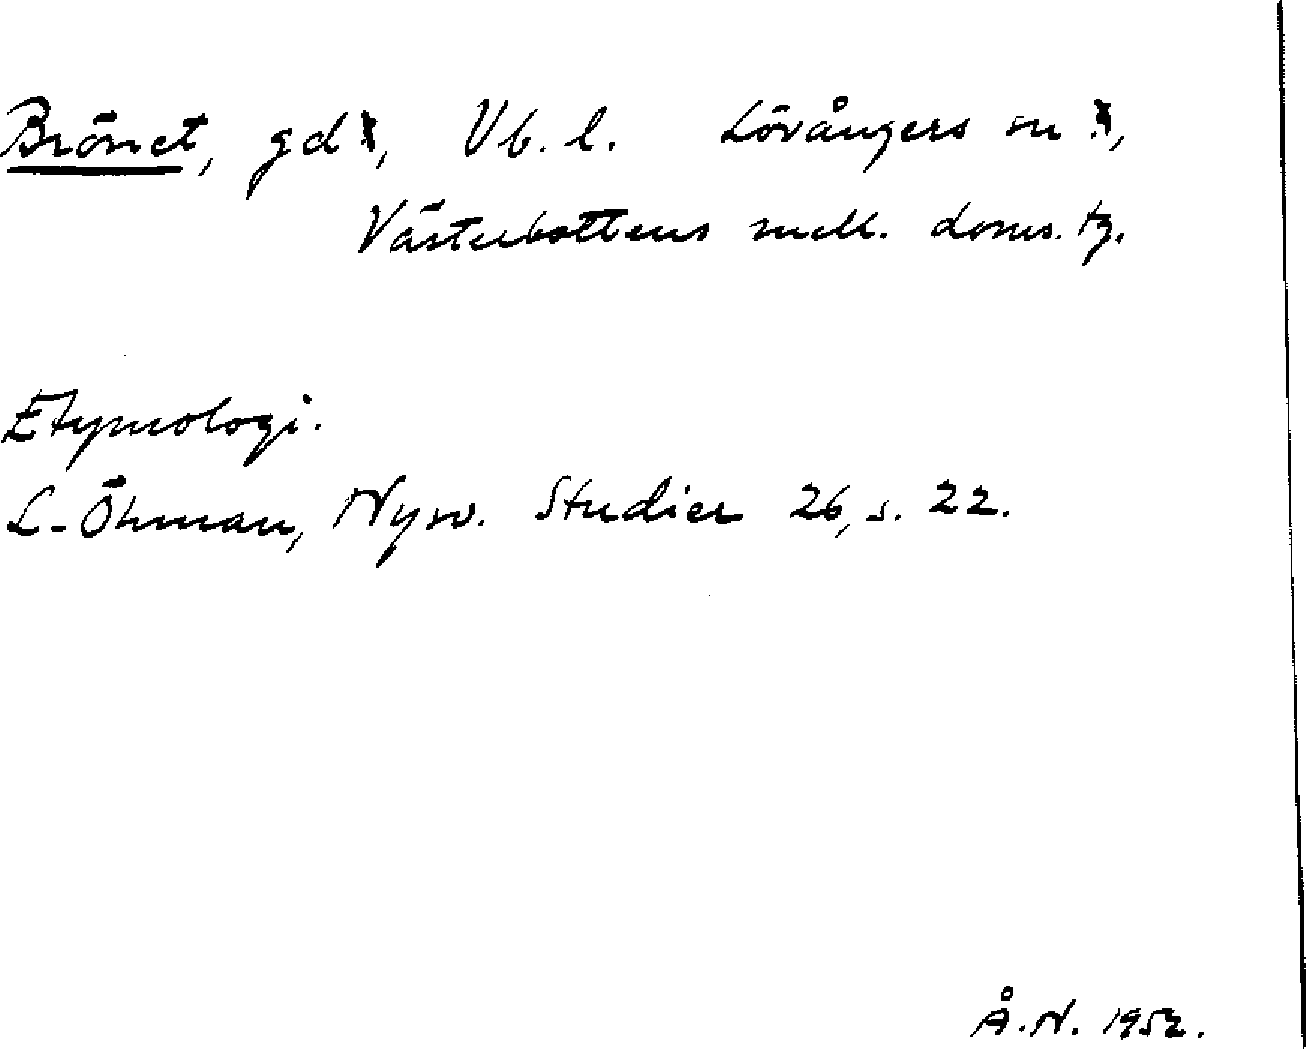 Brönet, gd, Vb. l. Lövångers sn,
Västerbottens mell. doms. tg.
Etymologi.
L. Öhman, Nysv. Studier 26, s. 22.
Å. N. 1952.